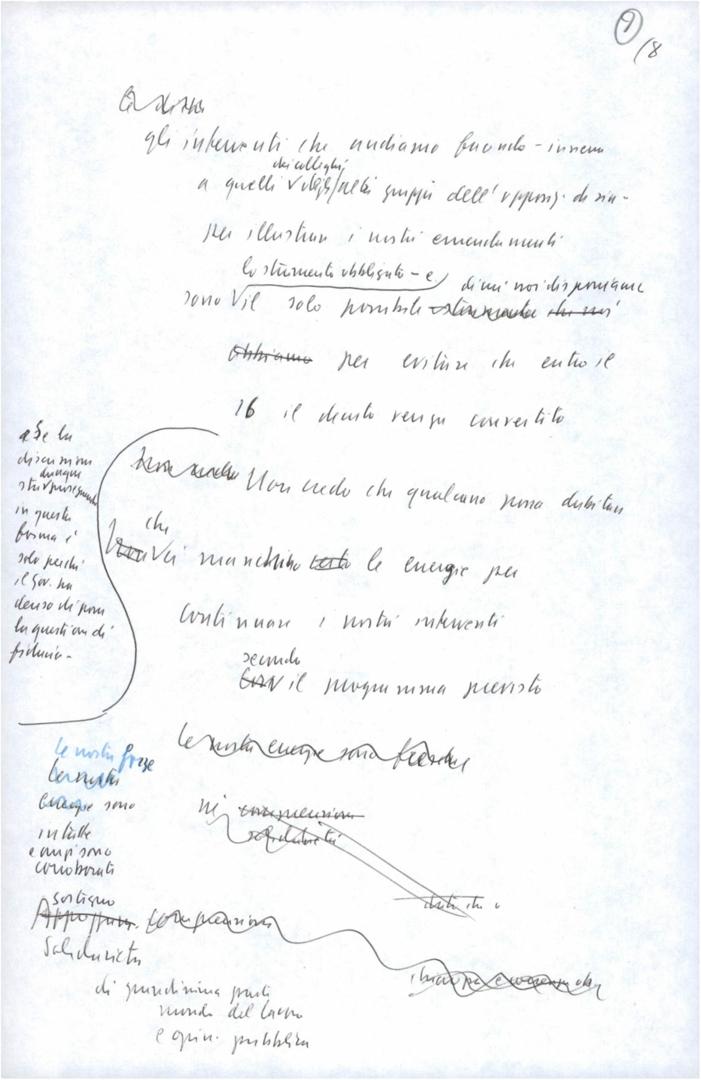 9
/8
gli interventi che andiamo facendo - insieme
dei colleghi
a quelli degli altri gruppi dell'opposiz. di sin -
per illustrare i nostri emendamenti
lo strumento obbligato - e
di cui noi disponiamo
sono il solo possibile strumento che noi
abbiamo per evitare che entro il
16 il decreto venga convertito
Non credo che qualcuno possa dubitare
che
ci manchino certo le energie per
continuare i nostri interventi
secondo
con il programma previsto
e Se la
discussione
dunque
sta proseguendo
in questa
forma è
solo perché
il Gov. ha
deciso di porre
la questione di
fiducia -
le nostre energie sono fresche
le nostre forze
le nostre
energie sono
intatte
e anzi sono
corroborate
né comprensione
solidarietà
sostegno
Appoggio. comprensione
Solidarietà
di grandissima parte
mondo del lavoro
e opin. pubblica